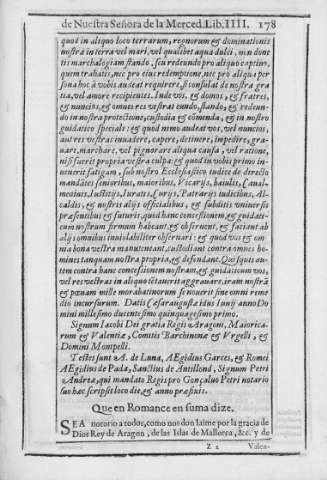 de Nuestra Señora de la Merced. Lib. IIII. 178
quod in aliquo loco terrarum, regnorum & dominationis
nostræ in terra vel mari, vel qualibet aqua dulci, nundo
tis marchalogiam stando, seu redeundo pro aliquo captivo,
quem trahatis, nec pro eius redemptione, nec pro aliqua per
sona hoc à vobis audeat requirere, si consulat de nostra gra
tia, vel amore recipientes. Inde vos, & domos, & fratres,
& nuncios, & omnes res vestras eundo, stando, & redeun
do in nostra protectione, custodia & cōmenda, & in nostro
guidatico speciali: & quod nemo audeat vos, vel nuncios,
aut res vestras invadere, capere, detinere, impedire, gra-
uare, marchare, vel pignorari aliqua causa, vel ratione,
nisi fuerit propria vestra culpa: & quod in vobis primo in-
uenerit fatigam, sub nostro Ecclesiastico iudice de directo
mandātes senioribus, maioribus, Vicarijs, baiulis, Çaual-
medinis, Iustitijs, Iuratis, Curijs, Patrarijs iudicibus, Al-
caldis, & nostris alijs officialibus, & subditis vniuersis
præsentibus & futuris, quid hanc concessionem, & guidati-
cum nostrum firmum habeant, & obseruent, & faciant ab
alijs omnibus inuiolabiliter obseruari: & quod vos & om
nia bona vestra manuteneant, custodiant contra omnes ho
mines tanquam nostra propria, & defendant. Quisquis au-
tem contra hanc concessionem nostram, & guidaticum vos,
vel res vestras in aliquo tētauerit aggrauare, iram nostrā
& pœnam mille morabatinorum se nouerit sine omni reme
dio incursurum. Datis Cæsaraugustæ idus Iunij anno Do
mini millesimo ducentesimo quinquagesimo primo.
Signum Iacobi Dei gratia Regis Aragoni, Maiorica-
rum & Valentiæ, Comitis Barchinonæ & Vrgelli, &
Domini Montpelli.
Testes sunt A. de Luna, AEgidius Garces, & Romei
AEgidius de Pada, Sanctius de Antillond, Signum Petri
Andreæ, qui mandato Regis pro Gonçaluo Petri notario
suo hæc scripsit loco die, & anno præfixis.
Que en Romance en suma dize.
SEA notorio a todos, como nos don Iaime por la gracia de
Dios Rey de Aragon, de las Islas de Mallorca, &c. y de
Z 2 Valen-